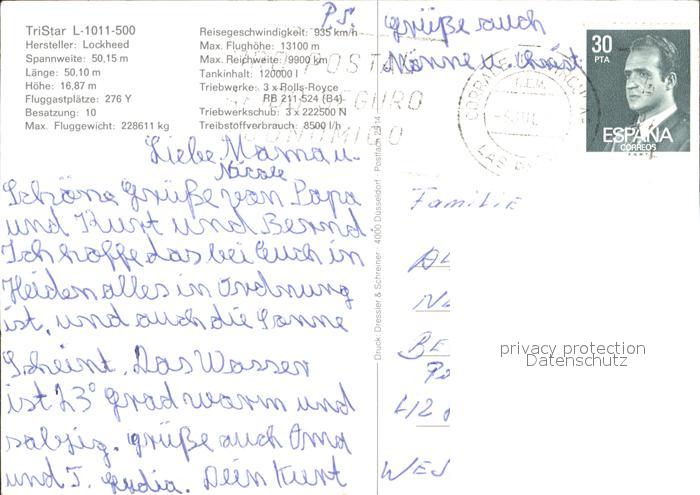 P.S. Grüße auch
Männe u. Christ.
TriStar L-1011-500
Hersteller: Lockheed
Spannweite: 50,15 m
Länge: 50,10 m
Höhe: 16,87 m
Fluggastplätze: 276 Y
Besatzung: 10
Max. Fluggewicht: 228611 kg
Reisegeschwindigkeit: 935 km/h
Max. Flughöhe: 13100 m
Max. Reichweite: 9900 km
Tankinhalt: 120000 l
Triebwerke: 3 x Rolls-Royce
RB 211-524 (B4)
Triebwerkschub: 3 x 222500 N
Treibstoffverbrauch: 8500 l/h
Liebe Mama u.
Nicole
Schöne Grüße von Papa
und Kurt und Bernd.
Ich hoffe das bei Euch in
Heiden alles in Ordnung
ist, und auch die Sonne
Scheint. Das Wasser
ist 23° grad warm und
salzig. grüße auch Oma
und T. Lydia. Dein Kurt
Druck: Dressler & Schreiner · 4000 Düsseldorf · Postfach 2514
30
PTA
ESPAÑA
CORREOS
Familie
BE
412
WES
privacy protection
Datenschutz